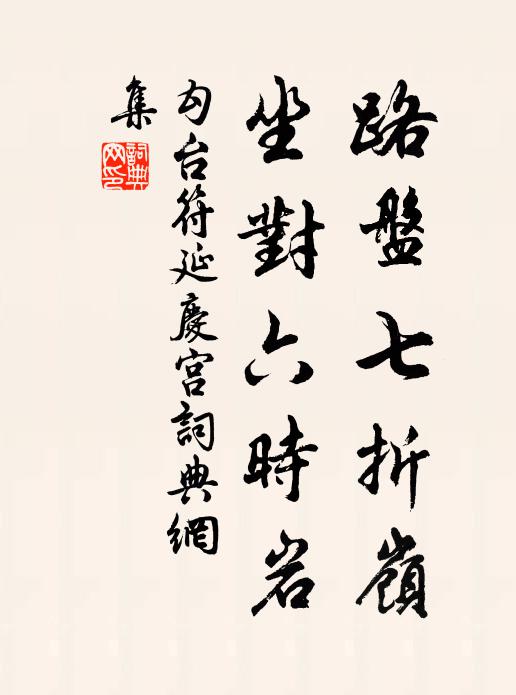 路盤七折嶺
坐對六時岩
勾台符延慶宫詞典網
集
詞典網印